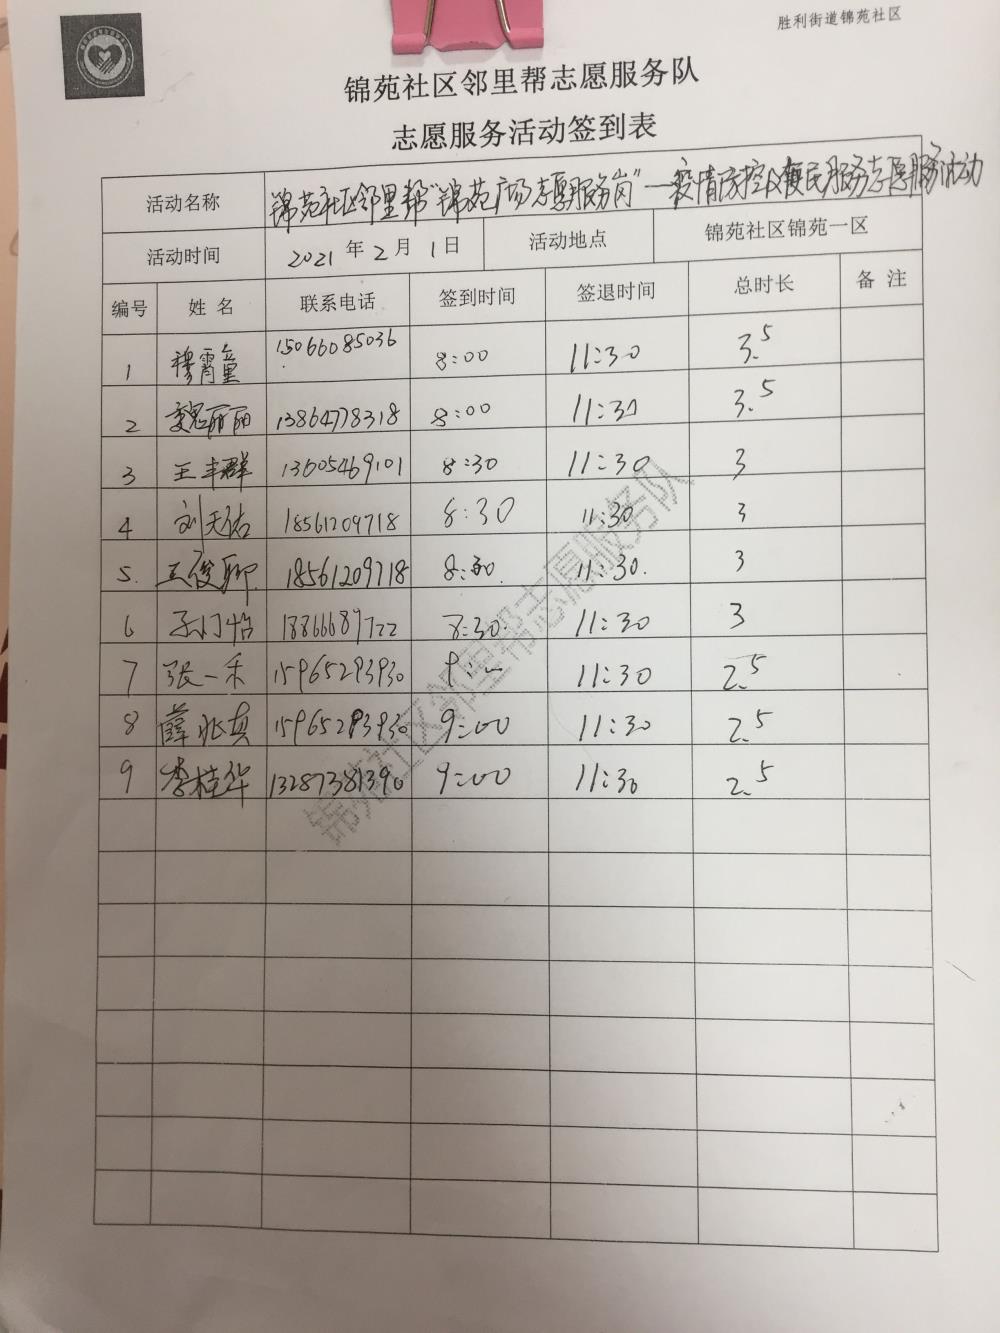 胜利街道锦苑社区
锦苑社区邻里帮志愿服务队
志愿服务活动签到表
活动名称 锦苑社区邻里帮“锦苑广场志愿服务岗”—疫情防控及便民服务志愿服务活动
活动时间 2021年2月1日 活动地点 锦苑社区锦苑一区
编号 姓名 联系电话 签到时间 签退时间 总时长 备注
1 穆霄童 15066085036 8:00 11:30 3.5
2 魏丽丽 13864778318 8:00 11:30 3.5
3 王丰群 13605469101 8:30 11:30 3
4 刘天佑 18561209718 8:30 11:30 3
5. 王俊聊 18561209718 8:30. 11:30. 3
6 18866689722 8:30. 11:30 3
7 张一禾 15965293930 9:00 11:30 2.5
8 薛兆真 15965293930 9:00 11:30 2.5
9 李桂华 13287381390 9:00 11:30 2.5
锦苑社区邻里帮志愿服务队